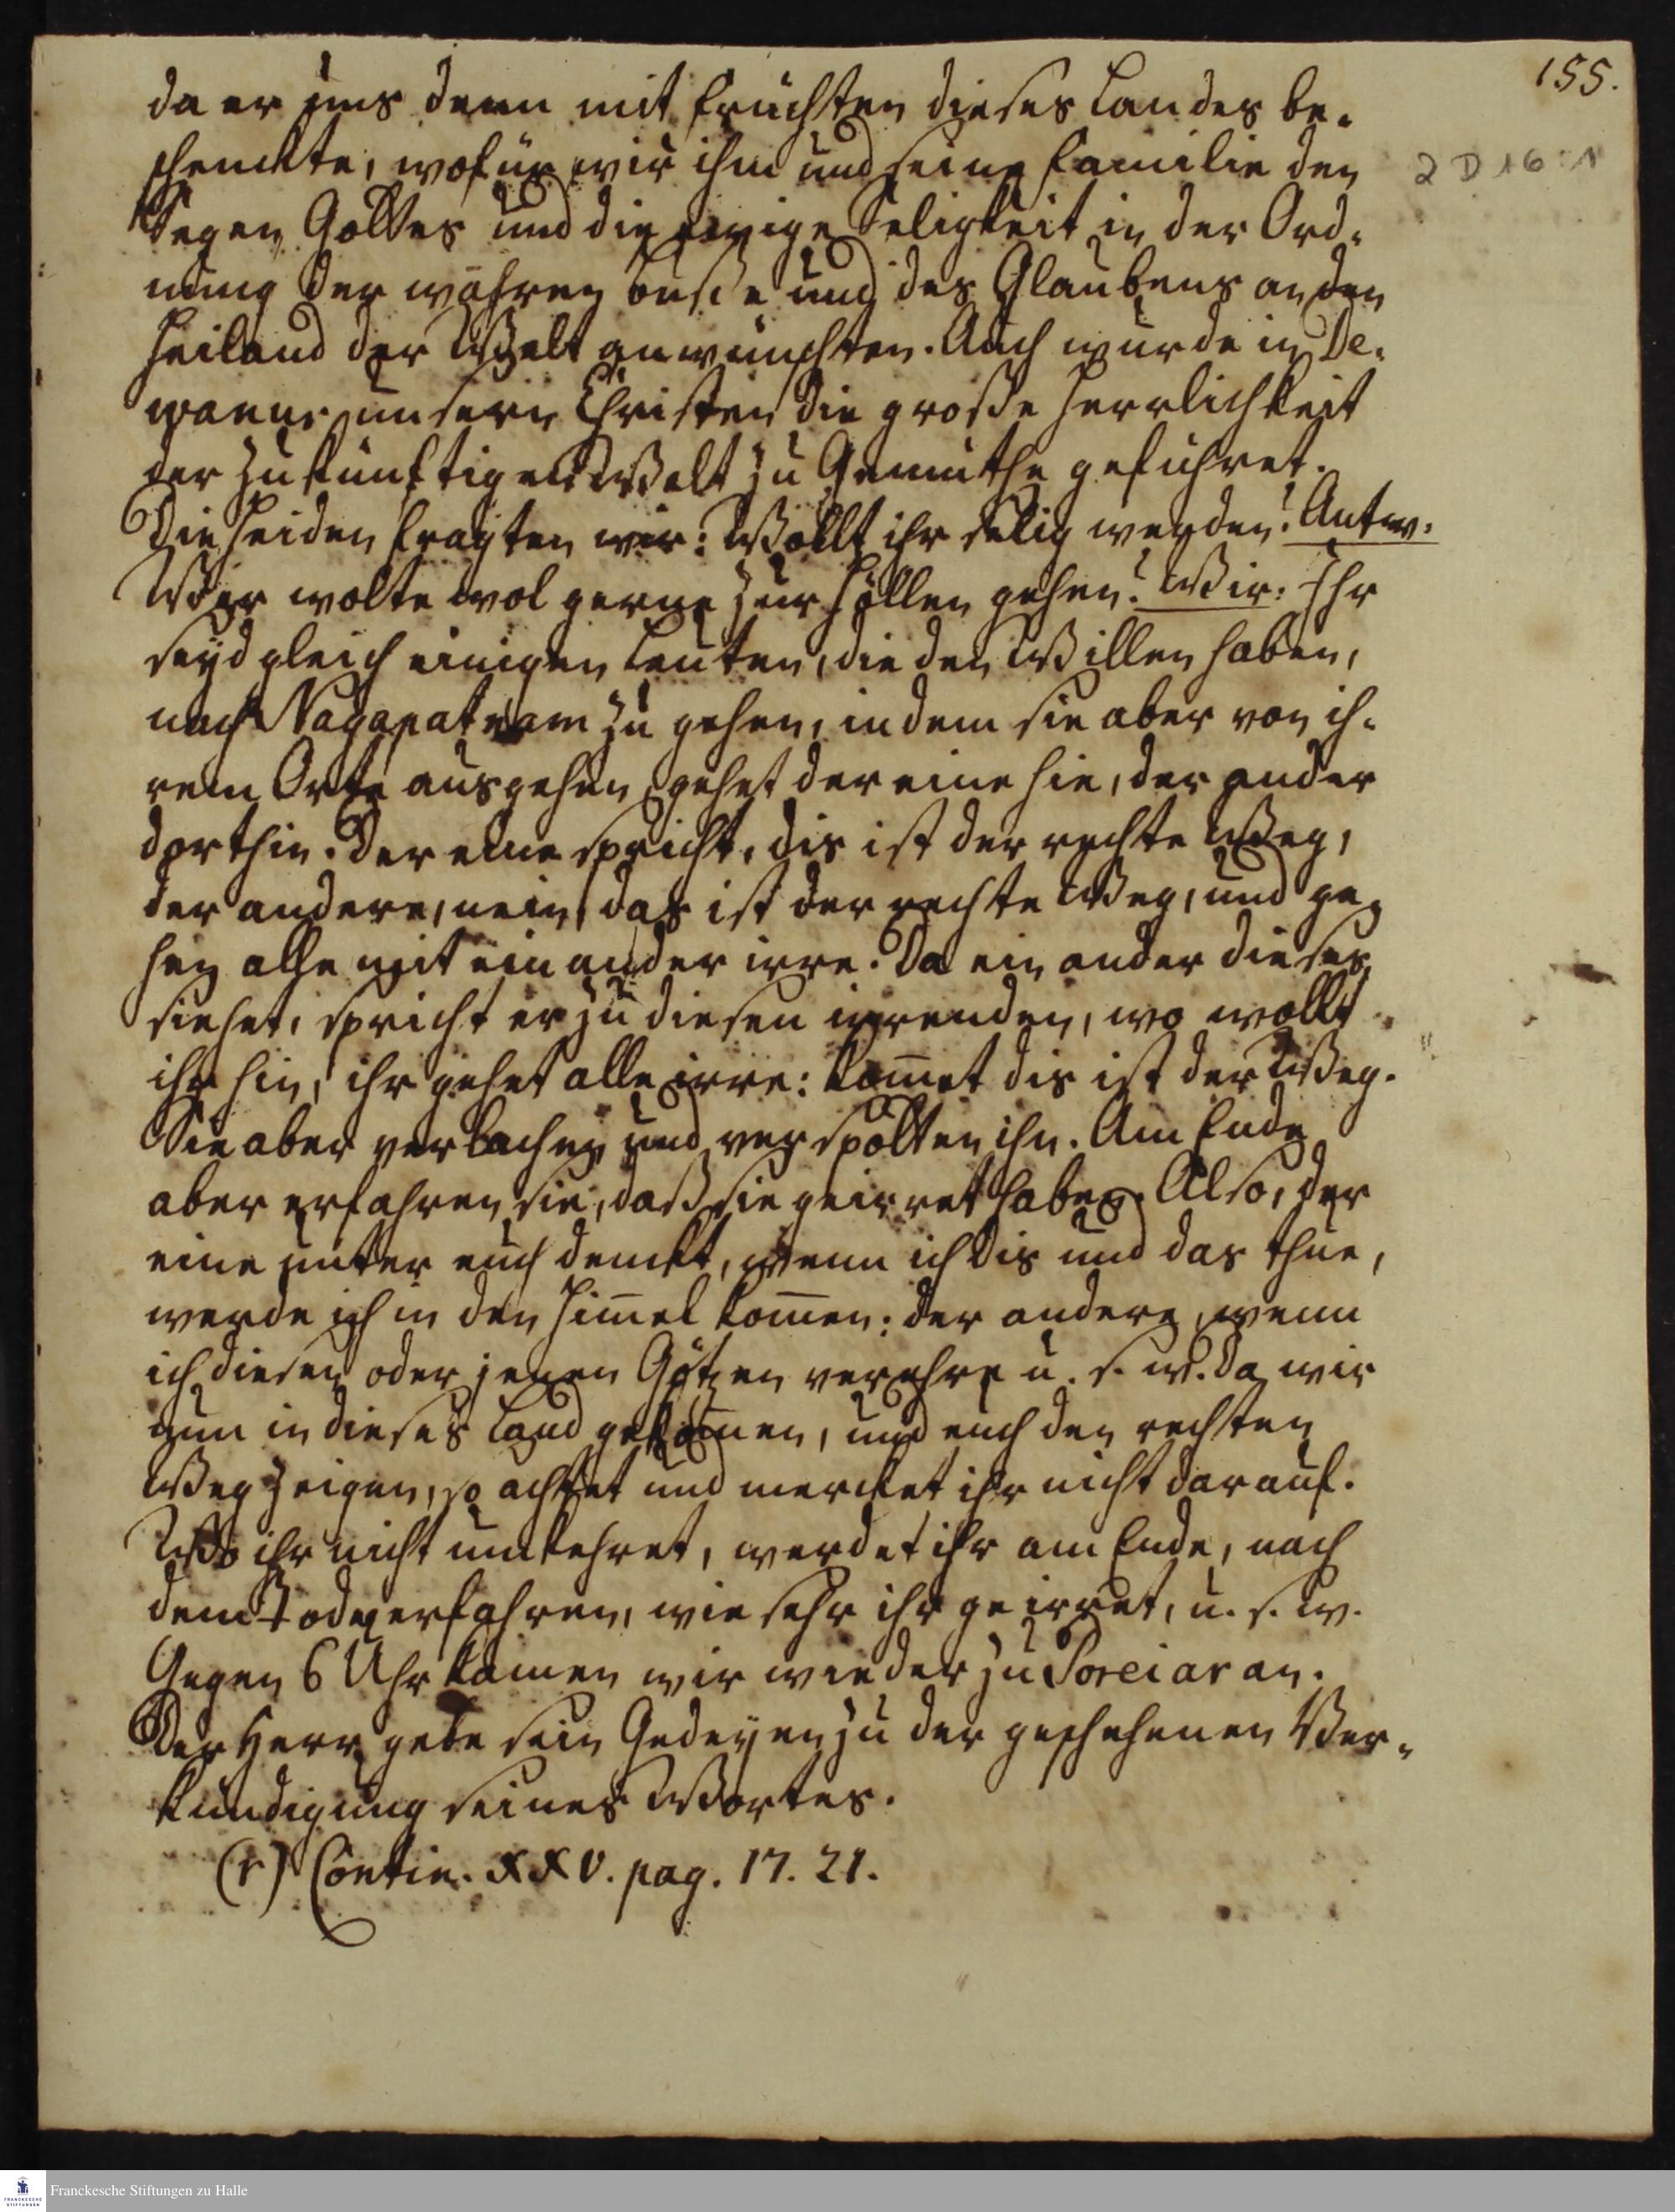 155.
da er uns denn mit Früchten dieses Landes be-
schenckte, wofür wir ihm und seine Familie den
Segen Gottes und die ewige Seligkeit in der Ord-
nung der wahren Buße und des Glaubens an den
Heiland der Welt anwünschten. Auch wurde in De-
wanur unsern Christen die große Herrlichkeit
der zukünftigen Welt zu Gemüthe geführet.
Die Heiden fragten wir: Wollt ihr selig werden? Antw.
Wer wolte wol gerne zur Höllen gehen? Wir: Ihr
seyd gleich einigen Leuten, die den Willen haben,
nach Nagapatnam zu gehen, indem sie aber von ih-
rem Orte ausgehen, gehet der eine hie, der ander
dorthin. Der eine spricht, dis ist der rechte Weg,
der andere, nein, das ist der rechte Weg, und ge-
hen alle mit einander irre. Da ein ander dieses
siehet, spricht er zu diesen irrenden, wo wollt
ihr hin, ihr gehet alle irre: kom̄et dis ist der Weg.
Sie aber verlachen und verspotten ihn. Am Ende
aber erfahren sie, daß sie geirret haben. Also, der
eine unter euch denckt, wenn ich dis und das thue,
werde ich in den Him̄el kom̄en: der andere, wenn
ich diesen oder jenen Götzen verehre u. s. w. Da wir
nun in dieses Land gekom̄en, und euch den rechten
Weg zeigen, so achtet und mercket ihr nicht darauf.
Wo ihr nicht umkehret, werdet ihr am Ende, nach
dem Tode erfahren, wie sehr ihr geirret, u. s. w.
Gegen 6 Uhr kamen wir wieder zu Poreiar an.
Der Herr gebe sein Gedeyen zu der geschehenen Ver-
kündigung seines Wortes.
(r) Contin. XXV. pag. 17. 21.
2 D 16 : 1
FRANCKESCHE
STIFTUNGEN
Franckesche Stiftungen zu Halle